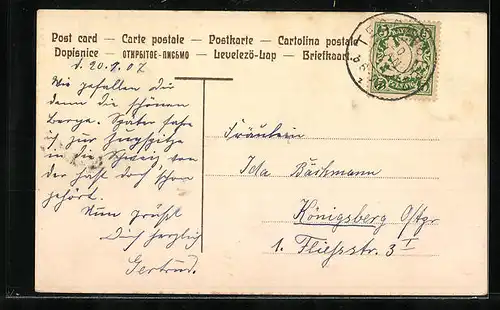 Post card — Carte postale — Postkarte — Cartolina postale
Dopisnice — ОТКРЫТОЕ-ПИСЬМО — Levelező-Lap — Briefkaart
d. 20.9.07.
Wie gefallen Dir
denn die schönen
Berge. Später fahre
ich zur Zugspitze
in die Schweiz, von
der hast doch schon
gehört.
Nun grüßt
Dich herzlich
Gertrud.
Fräulein
Ida Bachmann
Königsberg Ostpr
1. Fliessstr. 3 I